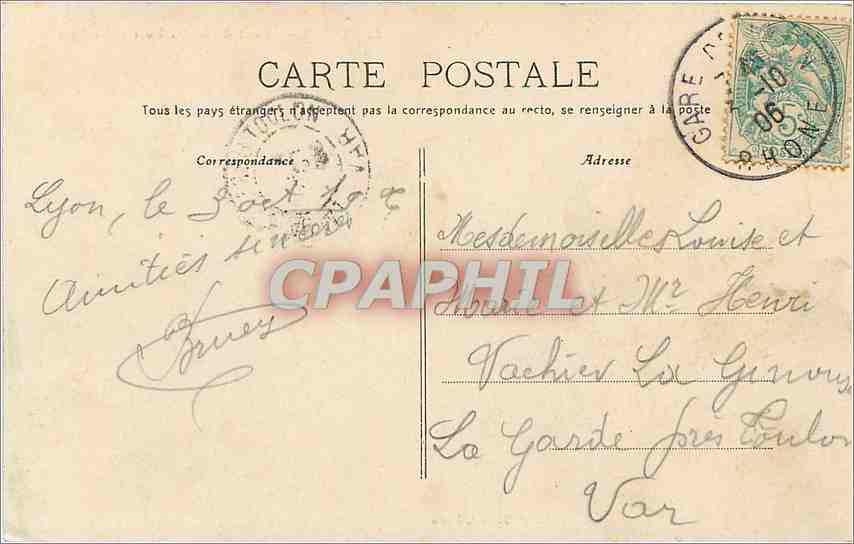 CARTE POSTALE
Tous les pays étrangers n'acceptent pas la correspondance au recto, se renseigner à la poste
Correspondance
Adresse
Lyon, le 3 oct 190
Amitiés sincères
Mesdemoiselles Louise et
Marie et Mr. Henri
Vachier La
La Garde près Toulon
Var
GARE
RHONE
-10
06
5
TOULON
VAR
CPAPHIL